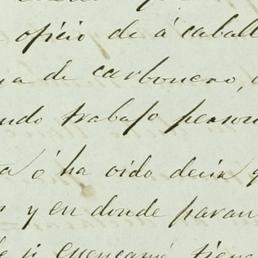 oficio de á caball
ya de carbonero,
ndo trabajo person
a ó ha oido decir q
s y en donde paran